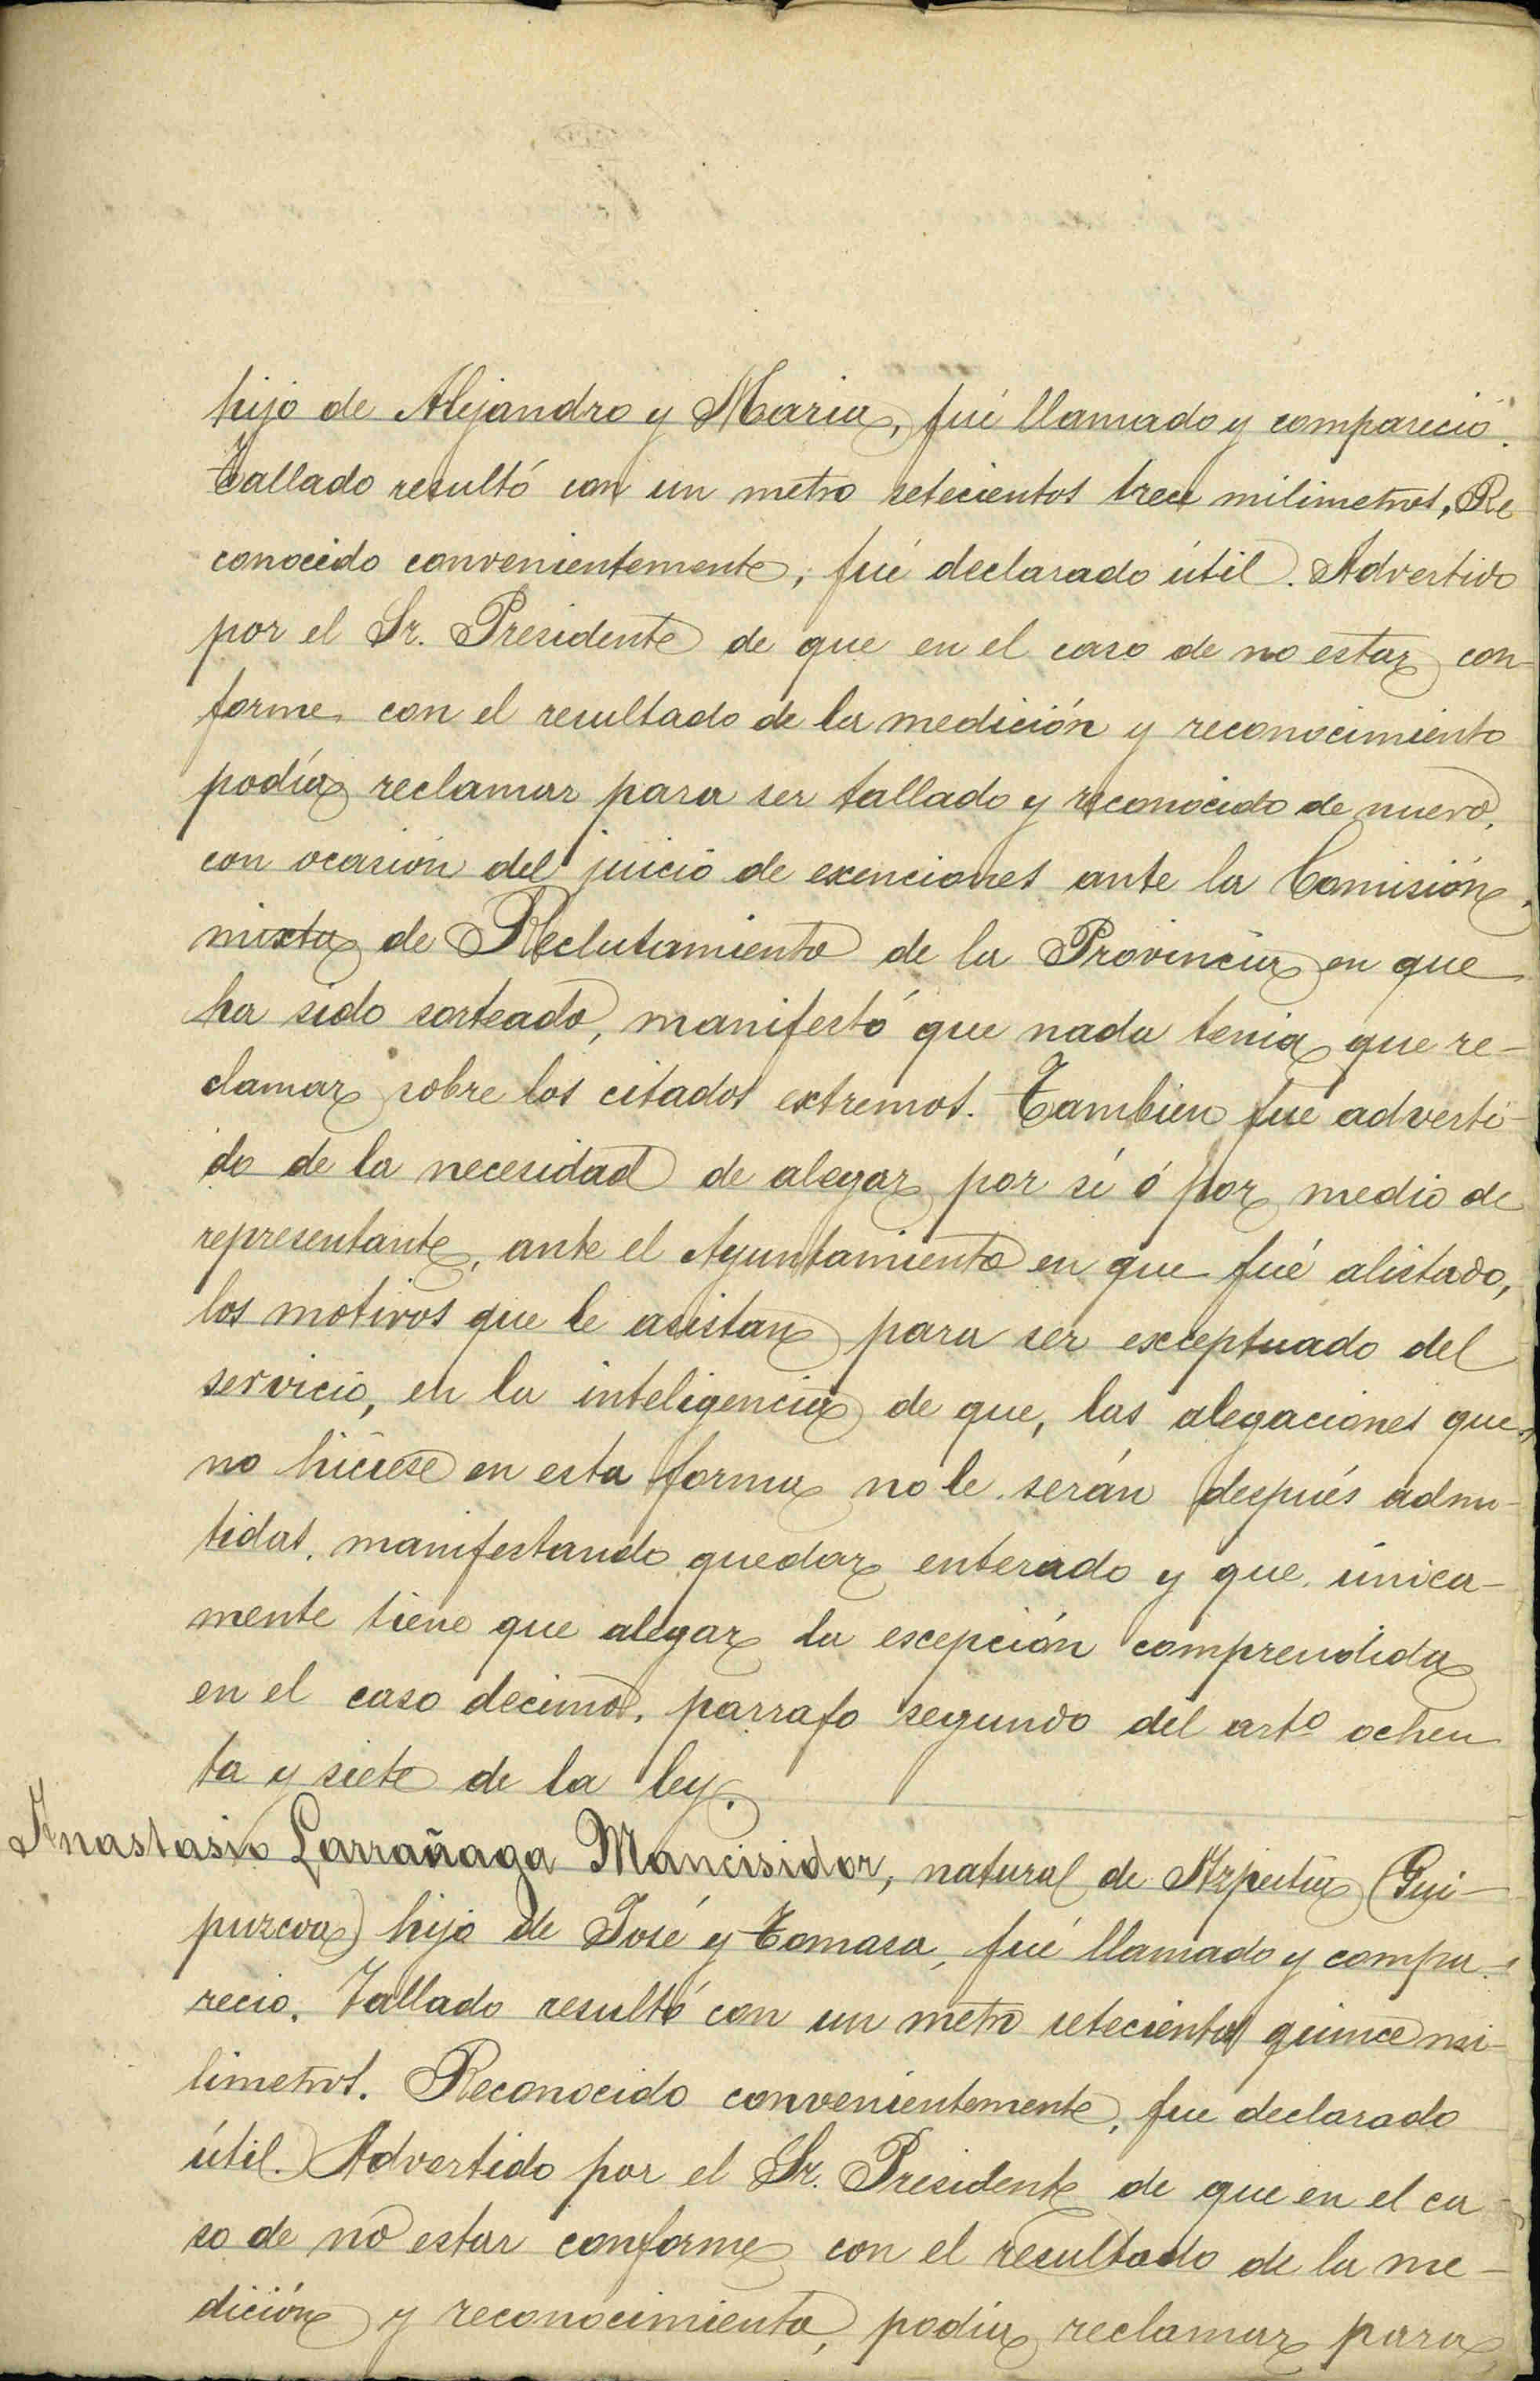 hijo de Alejandro y Maria, fué llamado y compareció.
Tallado resultó con un metro setecientos trece milimetros, Re-
conocido convenientemente, fué declarado útil. Advertido
por el Sr. Presidente de que en el caso de no estar con-
forme con el resultado de la medición y reconocimiento
podía reclamar para ser tallado y reconocido de nuevo,
con ocasión del juicio de exenciones ante la Comisión
mixta de Reclutamiento de la Provincia en que
ha sido sorteado, manifestó que nada tenia que re-
clamar sobre los citados extremos. Tambien fue adverti-
do de la necesidad de alegar por sí ó por medio de
representante, ante el Ayuntamiento en que fué alistado,
los motivos que le asistan para ser exceptuado del
servicio, en la inteligencia de que, las alegaciones que
no hiciese en esta forma no le serán después admi-
tidas, manifestando quedar enterado y que única-
mente tiene que alegar la escepción comprendida
en el caso decimo, parrafo segundo del artº ochen
ta y siete de la ley.
Anastasio Larrañaga Mancisidor, natural de Azpeitia (Gui-
puzcoa) hijo de José y Tomasa, fué llamado y compa-
recio. Tallado resultó con un metro setecientos quince mi-
limetros. Reconocido convenientemente, fue declarado
útil. Advertido por el Sr. Presidente de que en el ca-
so de no estar conforme con el resultado de la me-
dición y reconocimiento, podía reclamar para